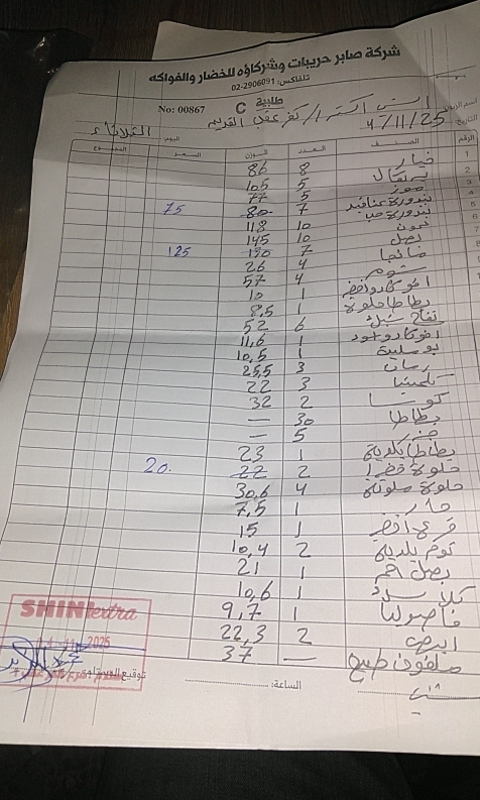 شركة صابر حريبات وشركاؤه للخضار والفواكه
تلفاكس: 02-2906091
طلبية C
No: 00867
اكسترا / كفر عقب القديم
التاريخ: 4/11/25 اليوم: الثلاثاء
الرقم الصنف العدد الوزن السعر المجموع
1 خيار 8 86
2 برتقال 5 105
3 موز 5 77
4 بندورة عناقيد 7 80 75
5 بندورة حب 10 118
6 10 145
7 بصل 7 190 125
8 مانجا 4 26
ثوم 4 57
افوكادو اخضر 1 10
بطاطا حلوة 1 8,5
تفاح 6 52
افوكادو اسود 1 11,6
بوملية 1 10,5
رمان 3 25,5
كلمنتينا 3 22
كوسا 2 32
بطاطا 30 —
جزر 5 —
بطاطا بلدية 1 23
حلوة خضرا 2 22 20.
حلوة ملونة 4 30,6
حار 1 7,5
قرع اخضر 1 15
ثوم بلدية 2 10,4
بصل احمر 1 21
1 10,6
فاصوليا 1 9,7
ابيض 2 22,3
ملفوف طبيخ — 37
SHINI extra
2025
توقيع المستلم:
الساعة: